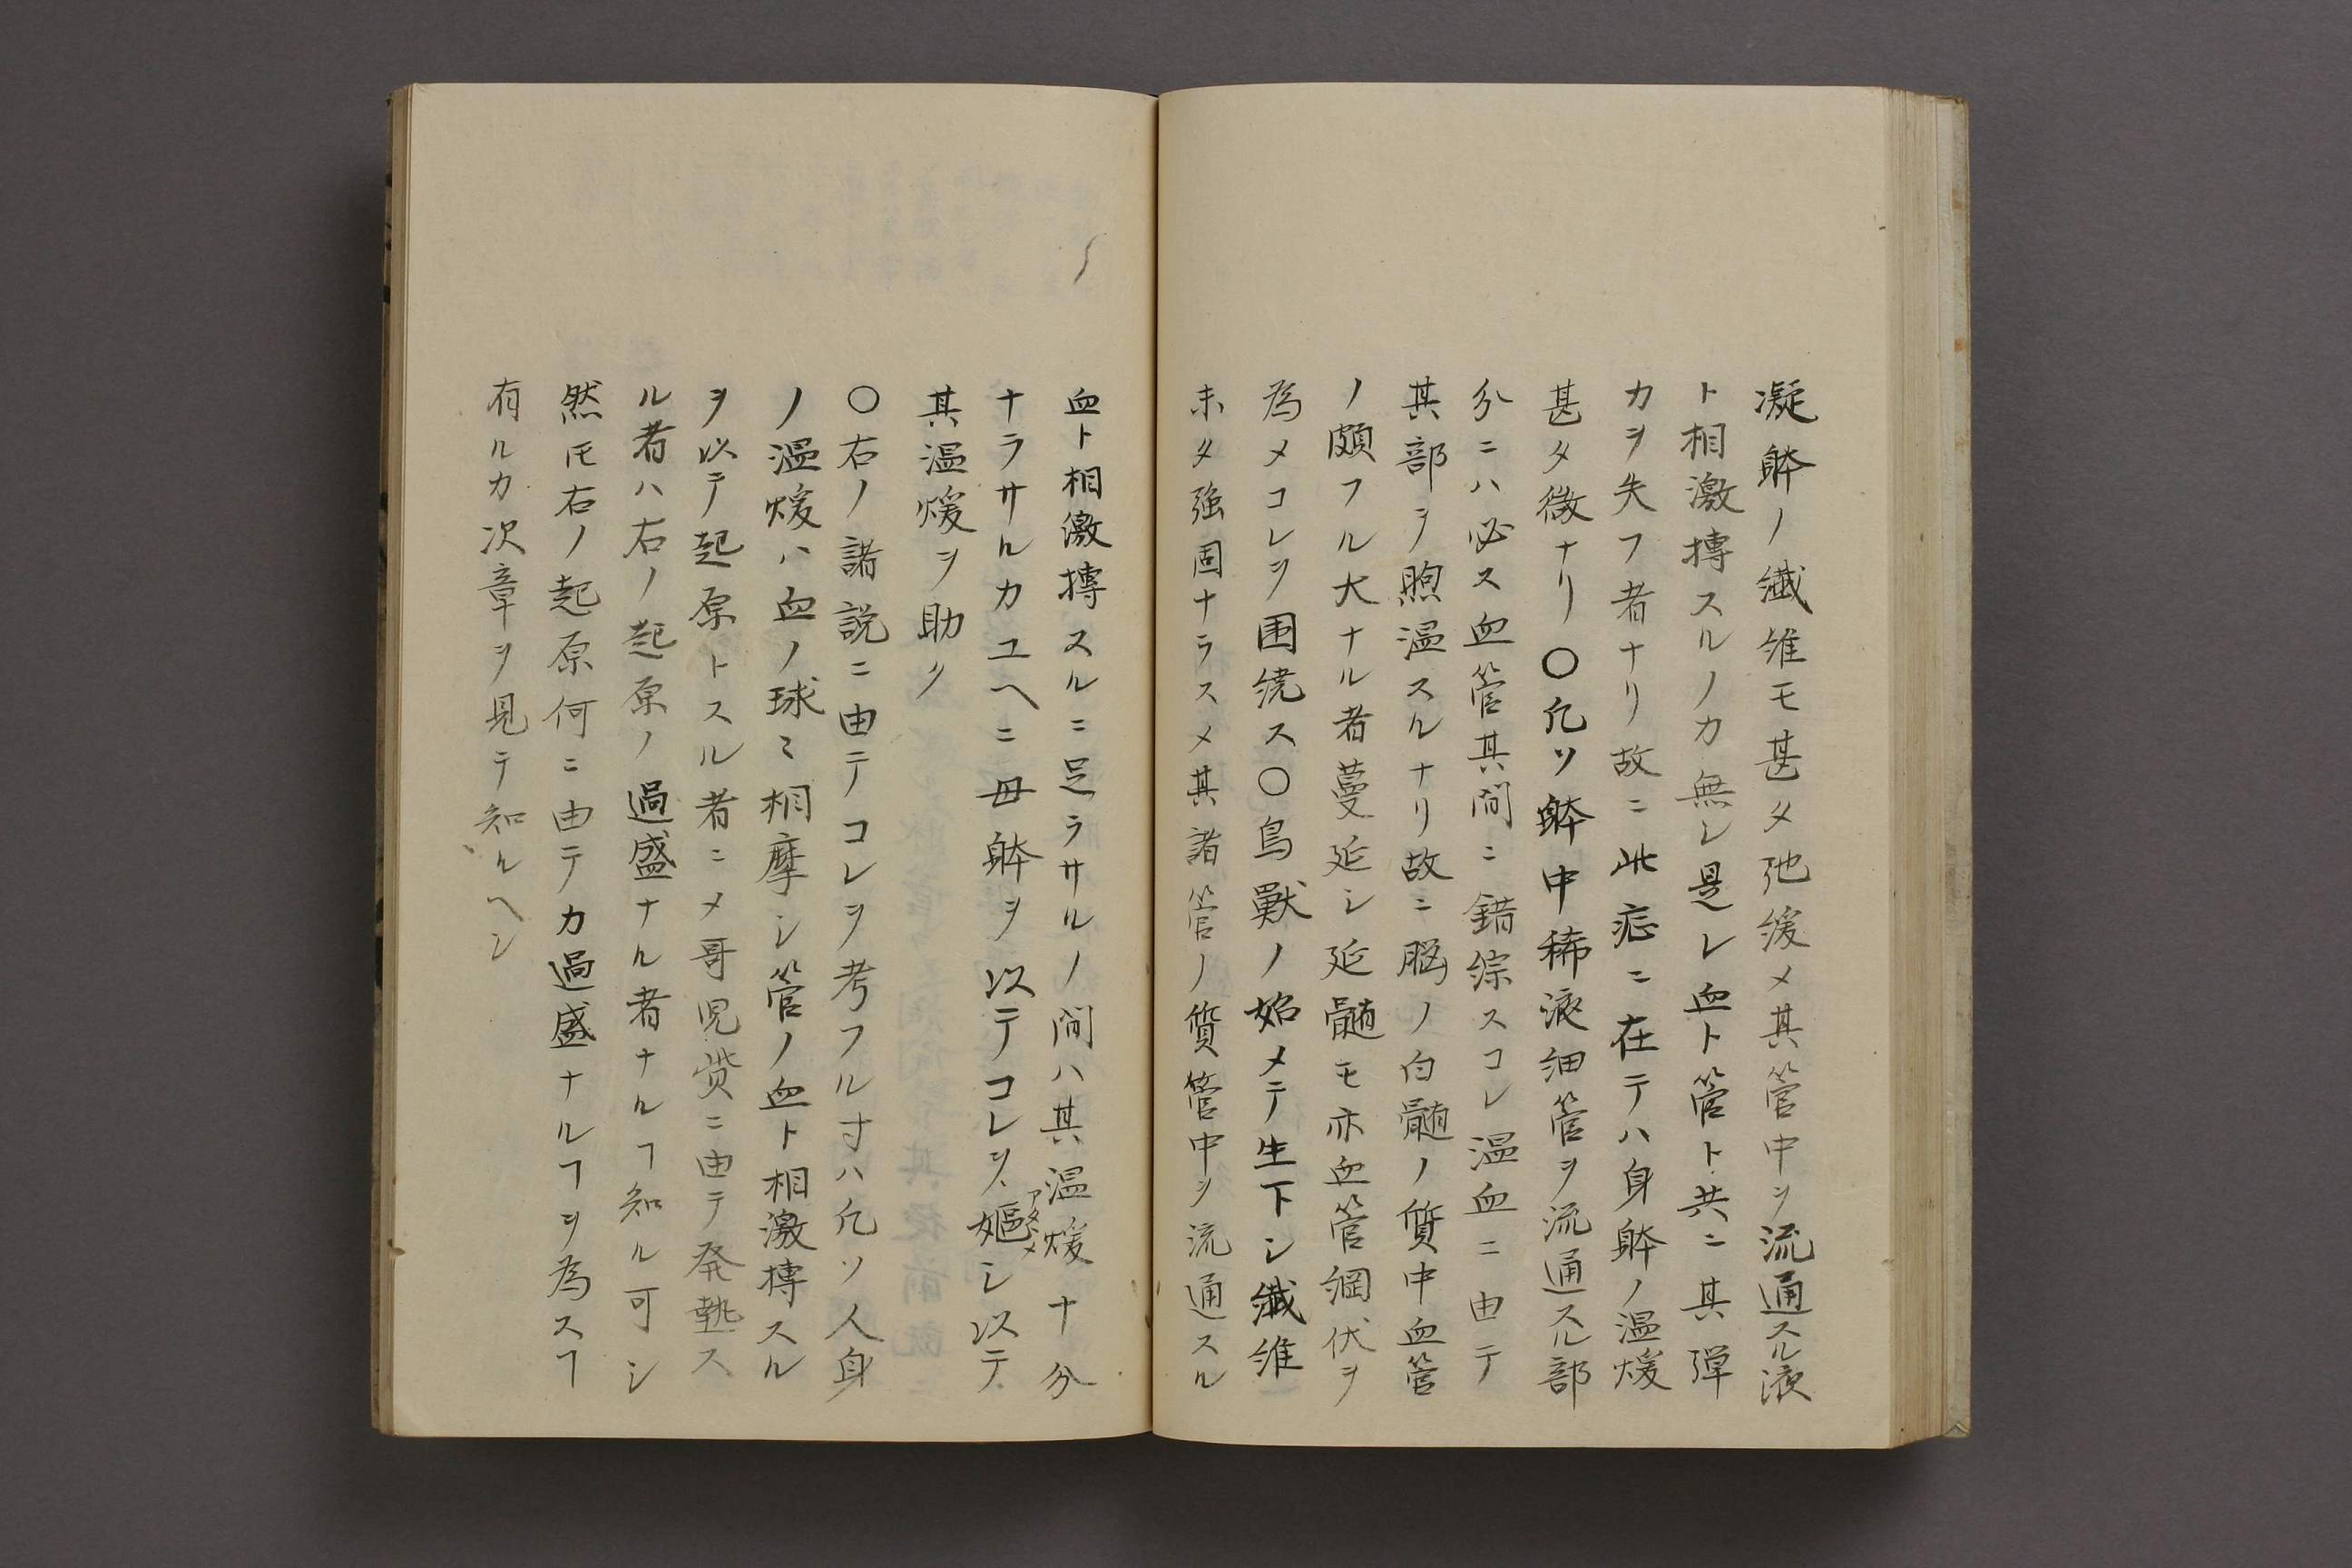 凝躰ノ纎維モ甚タ弛緩メ其管中ヲ流通スル液
ト相激摶スルノ力無シ是レ血ト管ト共ニ其弾
力ヲ失フ者ナリ故ニ此症ニ在テハ身躰ノ温煖
甚タ微ナリ〇凢ソ躰中稀液細管ヲ流通スル部
分ニハ必ス血管其間ニ錯綜スコレ温血ニ由テ
其部ヲ煦温スルナリ故ニ脳ノ白髄ノ質中血管
ノ頗フル大ナル者蔓延シ延髄モ亦血管綱伏ヲ
為メコレヲ囲繞ス〇鳥獸ノ始メテ生下シ纎維
未タ強固ナラスメ其諸管ノ質管中ヲ流通スル
血ト相激摶スルニ足ラサルノ間ハ其温煖十分
ナラサルカユヘニ母躰ヲ以テコレヲ嫗シ以テ
アタタメ
其温煖ヲ助ク
〇右ノ諸説ニ由テコレヲ考フル寸ハ凢ソ人身
ノ温煖ハ血ノ球〻相摩シ管ノ血ト相激摶スル
ヲ以テ起原トスル者ニメ哥児発ニ由テ発熱ス
ル者ハ右ノ起原ノ過盛ナル者ナルヿ知ル可シ
然𪜈右ノ起原何ニ由テカ過盛ナルヿヲ為スヿ
有ルカ次章ヲ見テ知ルヘシ